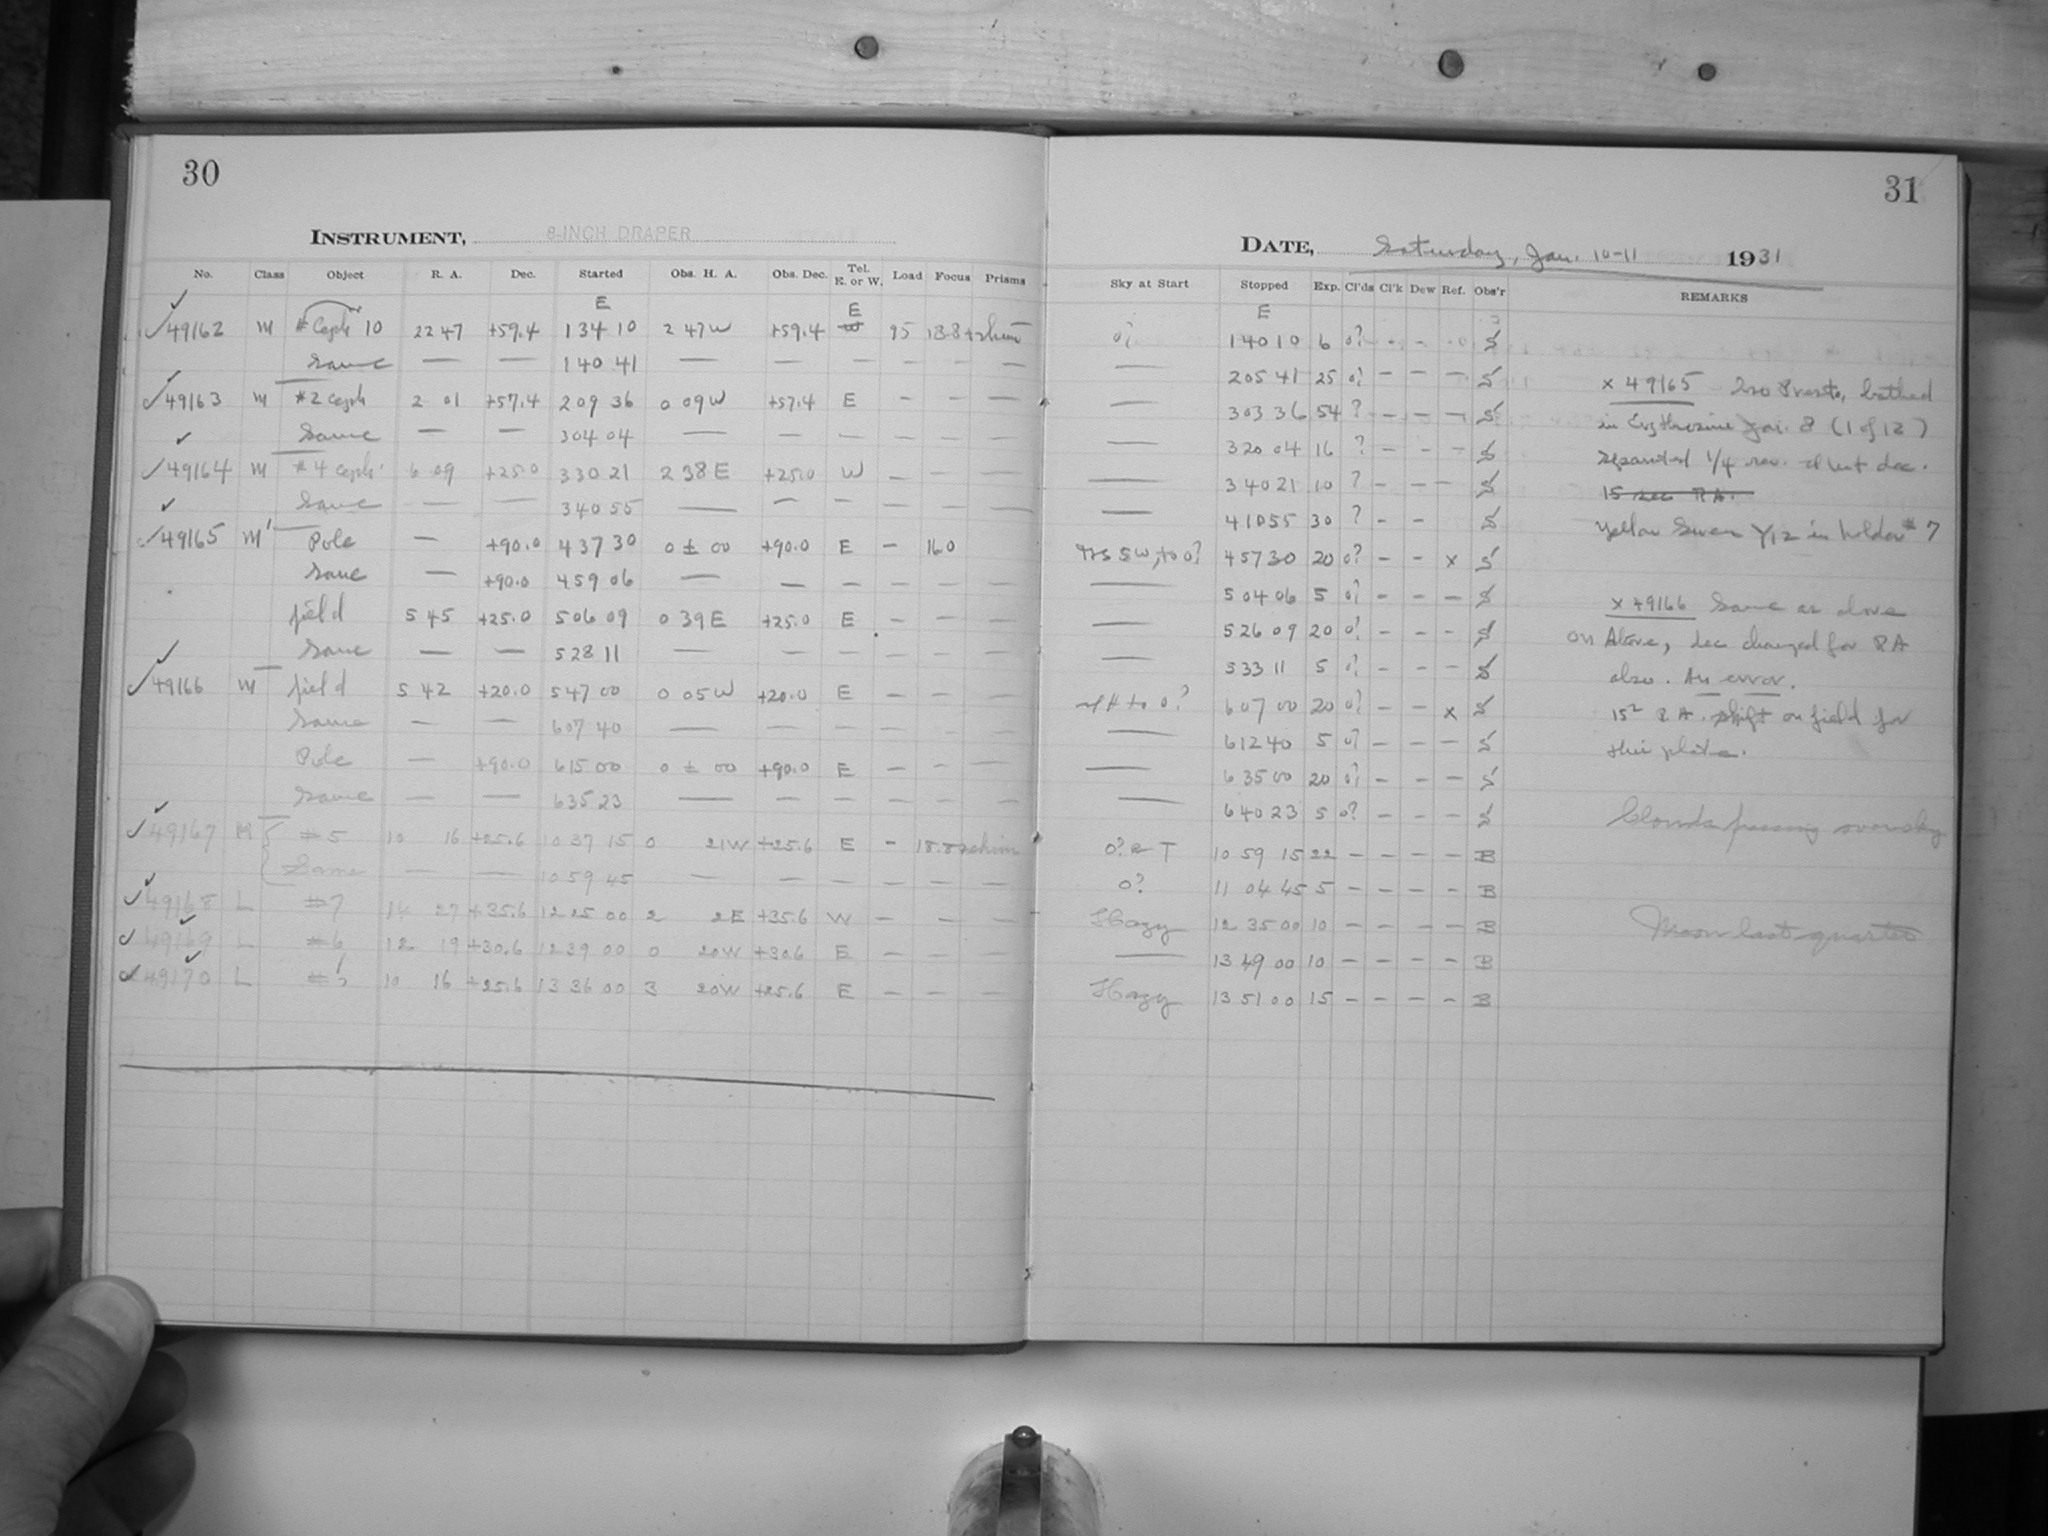 30
INSTRUMENT, 8-INCH DRAPER
No. Class Object R. A. Dec. Started Obs. H. A. Obs. Dec. Tel. E. or W. Load Focus Prisms
E E
49162 M Ceph 10 22 47 +59.4 1 34 10 2 47 W +59.4 W 95
Same — — 1 40 41 — — — — — —
49163 M #2 Ceph 2 01 +57.4 2 09 36 0 09 W +57.4 E — — —
Same — — 3 04 04 — — — — — —
49164 M #4 Ceph 6 09 +25.0 3 30 21 2 38 E +25.0 W — — —
Same — — 3 40 55 — — — — — —
49165 M' Pole — +90.0 4 37 30 0 ± 00 +90.0 E — 16.0
Same — +90.0 4 59 06 — — — — — —
field 5 45 +25.0 5 06 09 0 39 E +25.0 E — — —
Same — — 5 28 11 — — — — — —
49166 M' field 5 42 +20.0 5 47 00 0 05 W +20.0 E — — —
Same — — 6 07 40 — — — — — —
Pole — +90.0 6 15 00 0 ± 00 +90.0 E — — —
Same — — 6 35 23 — — — — — —
49167 M #5 10 16 +25.6 10 37 15 0 21 W +25.6 E —
Same — — 10 59 45 — — — — — —
49168 L #7 14 27 +35.6 12 25 00 2 2 E +35.6 W — — —
49169 L #6 12 19 +30.6 12 39 00 0 20 W +30.6 E — — —
49170 L #5 10 16 +25.6 13 36 00 3 20 W +25.6 E — — —
31
DATE, Saturday, Jan. 10-11 1931
Sky at Start Stopped Exp. Cl'ds Cl'k Dew Ref. Obs'r REMARKS
E
0? 1 40 10 6 0? - - - S
— 2 05 41 25 0? — — — S
— 3 03 36 54 ? — — — S
— 3 20 04 16 ? — — — S
— 3 40 21 10 ? — — — S
— 4 10 55 30 ? — — S
SW, to 0? 4 57 30 20 0? — — x S
— 5 04 06 5 0? — — — S
— 5 26 09 20 0? — — — S
— 5 33 11 5 0? — — — S
to 0? 6 07 00 20 0? — — x S
— 6 12 40 5 0? — — — S
— 6 35 00 20 0? — — — S
— 6 40 23 5 0? — — — S
0? & T 10 59 15 22 — — — — B
0? 11 04 45 5 — — — — B
Hazy 12 35 00 10 — — — — B
— 13 49 00 10 — — — — B
Hazy 13 51 00 15 — — — — B
x 49165 Iso Presto, bathed
in Erythrosine Jan. 8 (1 of 12)
separated 1/4 rev. dec.
15 sec R.A.
Yellow Screen Y12 in holder #7
x 49166 Same as above
on Above, dec changed for RA
also. An error.
R.A. shift on field for
this plate.
Clouds passing over sky
Moon last quarter